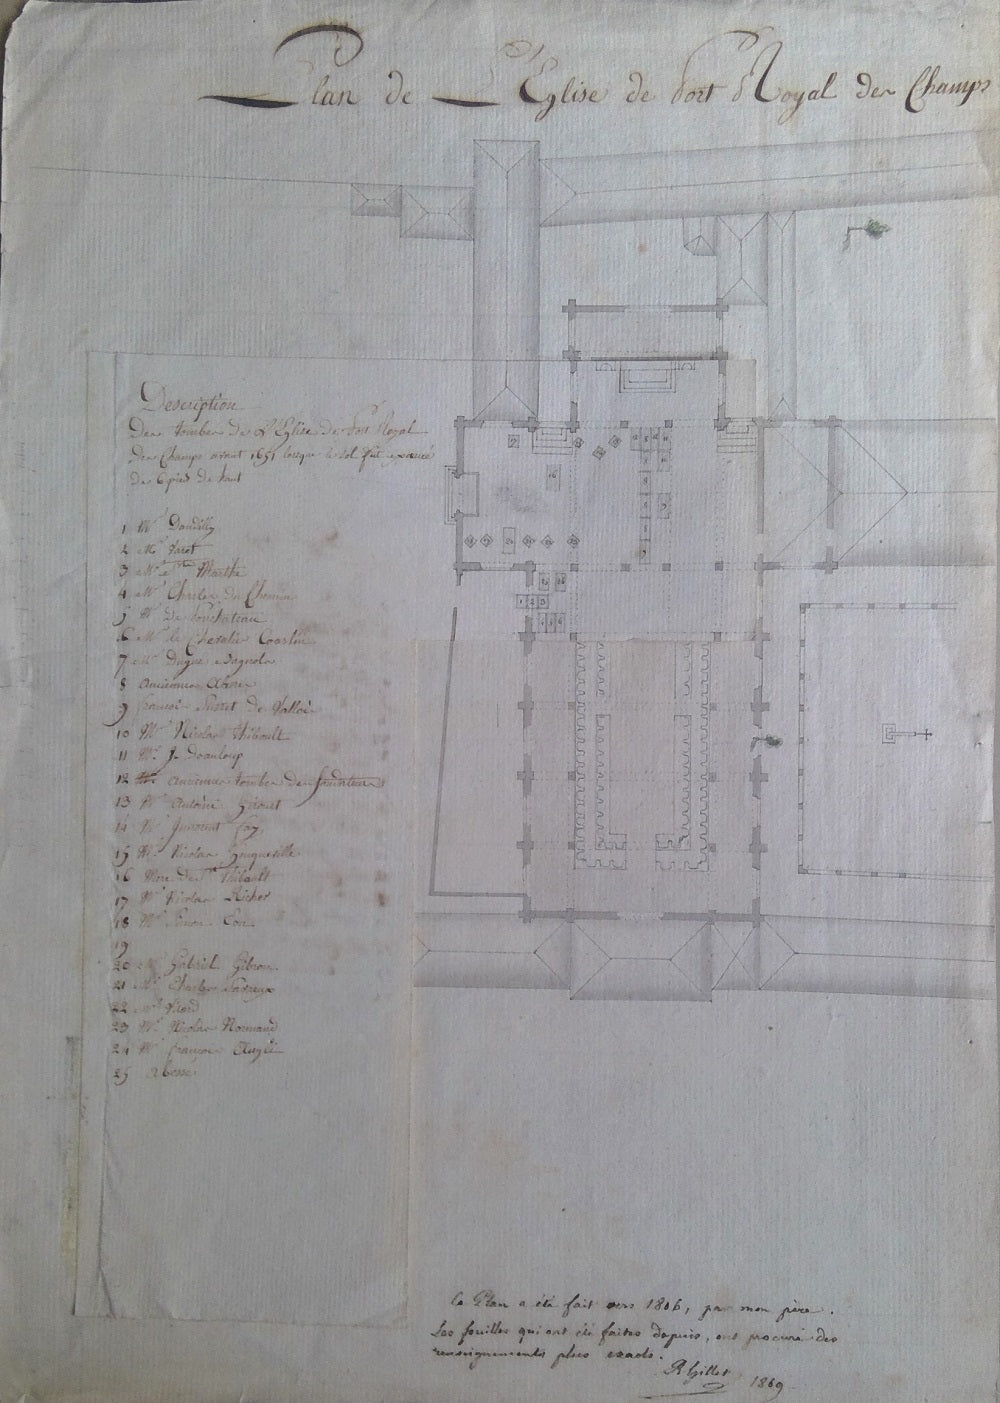 Plan de L'Eglise de Port Royal des Champs
Description
Des tombes de L'Eglise de Port Royal
Des Champs avant 1651 lorsque le sol fut exhaussé
De 6 pied de haut
1 Mr Dandilly
2 Mr
3 Mr Ste Marthe
4 Mr Charles Du Chemin
5 Mr De Pontchateau
6 Mr le Chevalier Coaslin
7 Mr Dugué Bagnols
8 anciennes
9 François de Vallois
10 Mr Nicolas Thibault
11 Mr J.
12 anciennes tombes de
13 Mr Antoine
14 Mr Innocent Fay
15 Mr Nicolas
16 Mme De St Thibault
17 Mr Nicolas Richer
18 Mr
19
20 Mr Gabriel Gibron
21 Mr Charles
22 Mr Vitard
23 Mr Nicolas Normand
24 Mr François
25 Abesse
le Plan a été fait vers 1806, par mon père.
Les fouilles qui ont été faites depuis, ont procuré des
renseignements plus exacts.
R Gillet
1869